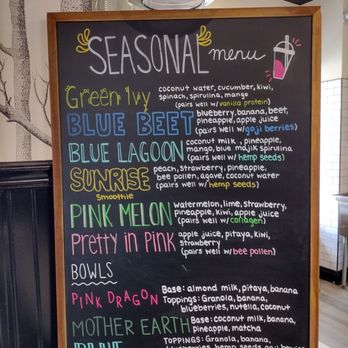 SEASONAL menu
Green Ivy coconut water, cucumber, kiwi,
spinach, spirulina, mango
(pairs well w/ vanilla protein)
BLUE BEET blueberry, banana, beet,
pineapple, apple juice
(pairs well w/ goji berries)
BLUE LAGOON coconut milk, pineapple,
mango, blue majik spirulina
(pairs well w/ hemp seeds)
SUNRISE peach, strawberry, pineapple,
bee pollen, agave, coconut water
Smoothie (pairs well w/ hemp seeds)
PINK MELON watermelon, lime, strawberry,
pineapple, kiwi, apple juice
(pairs well w/ collagen)
Pretty in Pink apple juice, pitaya, kiwi,
strawberry
(pairs well w/ bee pollen)
BOWLS
PINK DRAGON Base: almond milk, pitaya, banana
Toppings: Granola, banana,
blueberries, nutella, coconut
MOTHER EARTH Base: coconut milk, banana,
pineapple, matcha
Toppings: Granola, banana,